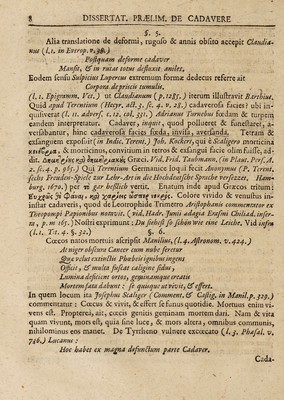 8 DISSERTAT. PRÆLIM. DE CADAVERE
§. 5.
Alia translatione de deformi, rugoso & annis obsito accepit Claudia-
nus (l. 1. in Eutrop. v. 38.)
Postquam deforme cadaver
Mansit, & in rugas totus defluxit aniles,
Eodem sensu Sulpicius Lupercus extremum formæ dedecus referre ait
Corpora depictis tumulis,
(l. 1. Epigramm. Vet.) ut Claudianum (p. 1285.) iterum illustravit Barthius.
Quid apud Terentium (Hecyr. act. 3. sc. 4. v. 28.) cadaverosa facies? ubi in-
quisiverat (l. 11. advers. c. 12. col. 331.) Adrianus Turnebus fœdam & turpem
eandem interpretatur. Cadaver, inquit, quod pollinctores & funerarii, as-
servabantur, hinc cadaverosa facies fœda, invisa, aversanda. Tetram &
exsanguem exposuit (in Indic. Terent.) Joh. Kockert, qui è Scaligero morticina
& morticinus, convitium in tetros & exsangui facie olim fuisse, ad-
dit. Græci. Vid. Frid. Taubmann. (in Plaut. Pers. A.
2. sc. 4. p. 965.) Qui Terentium Germanice loqui fecit Anonymus (P. Terent.
sechs Freuden-Spiele zur Lehr-Art in die Hochdeutsche Sprache versetzet, Ham-
burg. 1670.) per gar hesslich vertit. Enatum inde apud Græcos tritum
Colore vivido & venustus in-
instar cadaveris, quod de Leotrophide Tinnetro Aristophanis commentator ex
Theopompi Paphlonibus notavit. (vid. Hadr. Junii adagia Erasmi Chiliad. inser-
ta, p. m. 165.) Nostri exprimunt: Du siehest so schön wie eine Leiche. Vid infra
(l. 1. Tit. 4. §. 52.) §. 6.
Cœcos natos mortuis ascripsit Manilius, (l. 4. Astronom. v. 424.)
At niger obscura Cancer cum nube feretur
Qua velut extinctus Phœbeis ignibus ignes
Officit, & multa fuscat caligine sidus;
Lumina deficient ortos, geminamque creatis
Mortem fata dabunt: se quisque ut vivit, & effert.
In quem locum ita Josephus Scaliger (Comment. & Castig. in Manil. p. 323.)
commentatur: Cœcus & vivit, & effert se funus quotidie. Mortuus enim vi-
vens est. Propterea, ait, cœcis genitis geminam mortem dari. Nam & vita
quam vivunt, mors est, quia sine luce, & mors altera, omnibus communis,
nihilominus eos manet. De Tyrrheno vulnere excœcato (l. 3. Phasal. v.
746.) Lucanus:
Hoc habet ex magna defunctum parte Cadaver.
Cada-